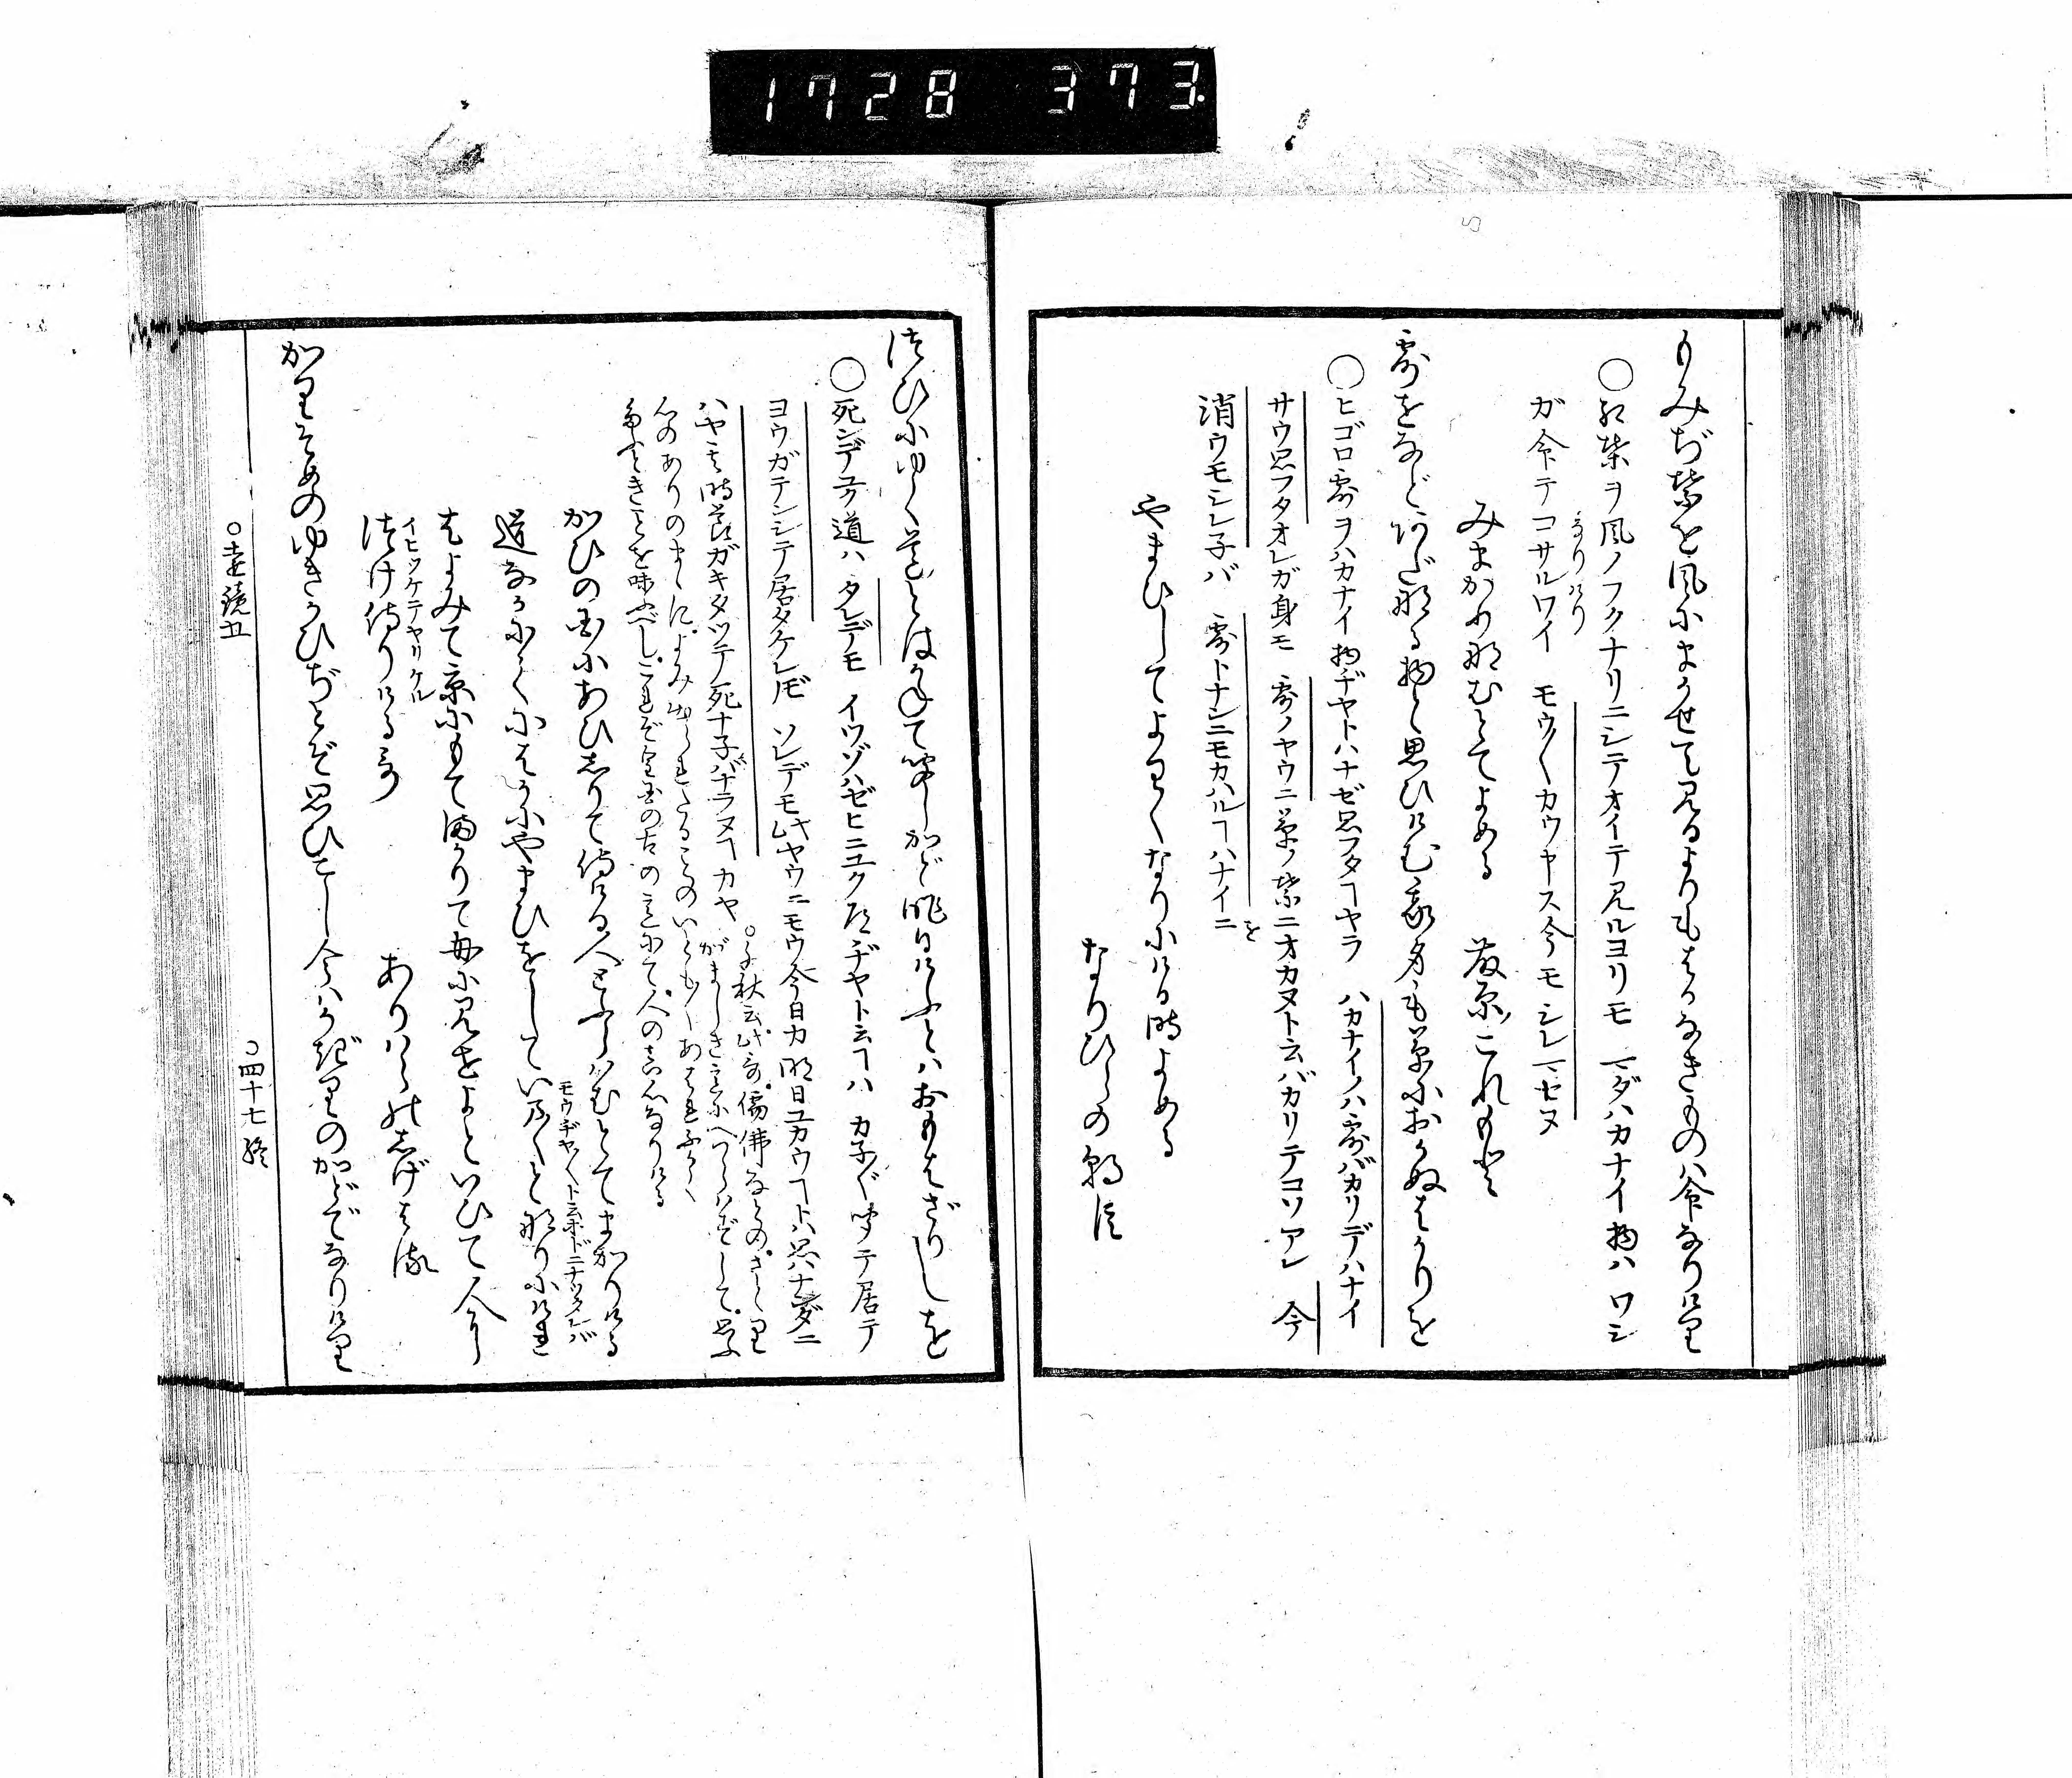 1728 373
もみぢ葉を風にまかせて見るよりもはかなきものハ命なりけり
○紅葉ヲ風ノフクナリニシテオイテ見ルヨリモ マダハカナイ物ハ ワシ
なりけり
ガ命テコサルワイ モウ〱カウヤス今モシレマセヌ
みまかり那むとてよめる 藤原これもと
露をなどあだ那る物と思ひけむ我身も草におかぬはかりを
○ヒゴロ露ヲハカナイ物ヂヤトハナゼ思フタヿヤラ ハカナイノハ露バカリデハナイ
サウ思フタオレガ身モ 露ノヤウニ草ノ葉ニオカヌト云バカリテコソアレ 今
消ウモシレ子バ 露トナンニモカハルヿハナイニ
を
やまひしてよわくなりにける時よめる
なりひらの朝臣
つひにゆく道とはかねて聞しかど昨日けふとハおもはざりしを
○死ンデユク道ハ タレデモ イツゾハゼヒニユク道ヂヤト云ヿハ カ子〲聞テ居テ
ヨウガテンシテ居タケレドモ ソレデモ此ヤウニモウ今日カ明日ユカウヿトハ思ハナンダニ
ハヤ其時節ガキタツテ死ナ子バナラヌヿカヤ
○千秋云此哥
心のありのまゝに
かひの国にあひしりて侍ける人とふらはむとてまかりける
道なかにてにはかにやまひをしていま〱と那りにけれ
モウヂヤ〱ト云ホドニナツタレバ
はよみて京にもてまかりて母に見せよといひて人に
つけ侍りける哥
イヒツケテヤリケル
ありはらのしげはる
かりそめのゆきかひぢとぞ思ひこし今ハかぎりのかどでなりけり
○遠鏡五
○四十七終